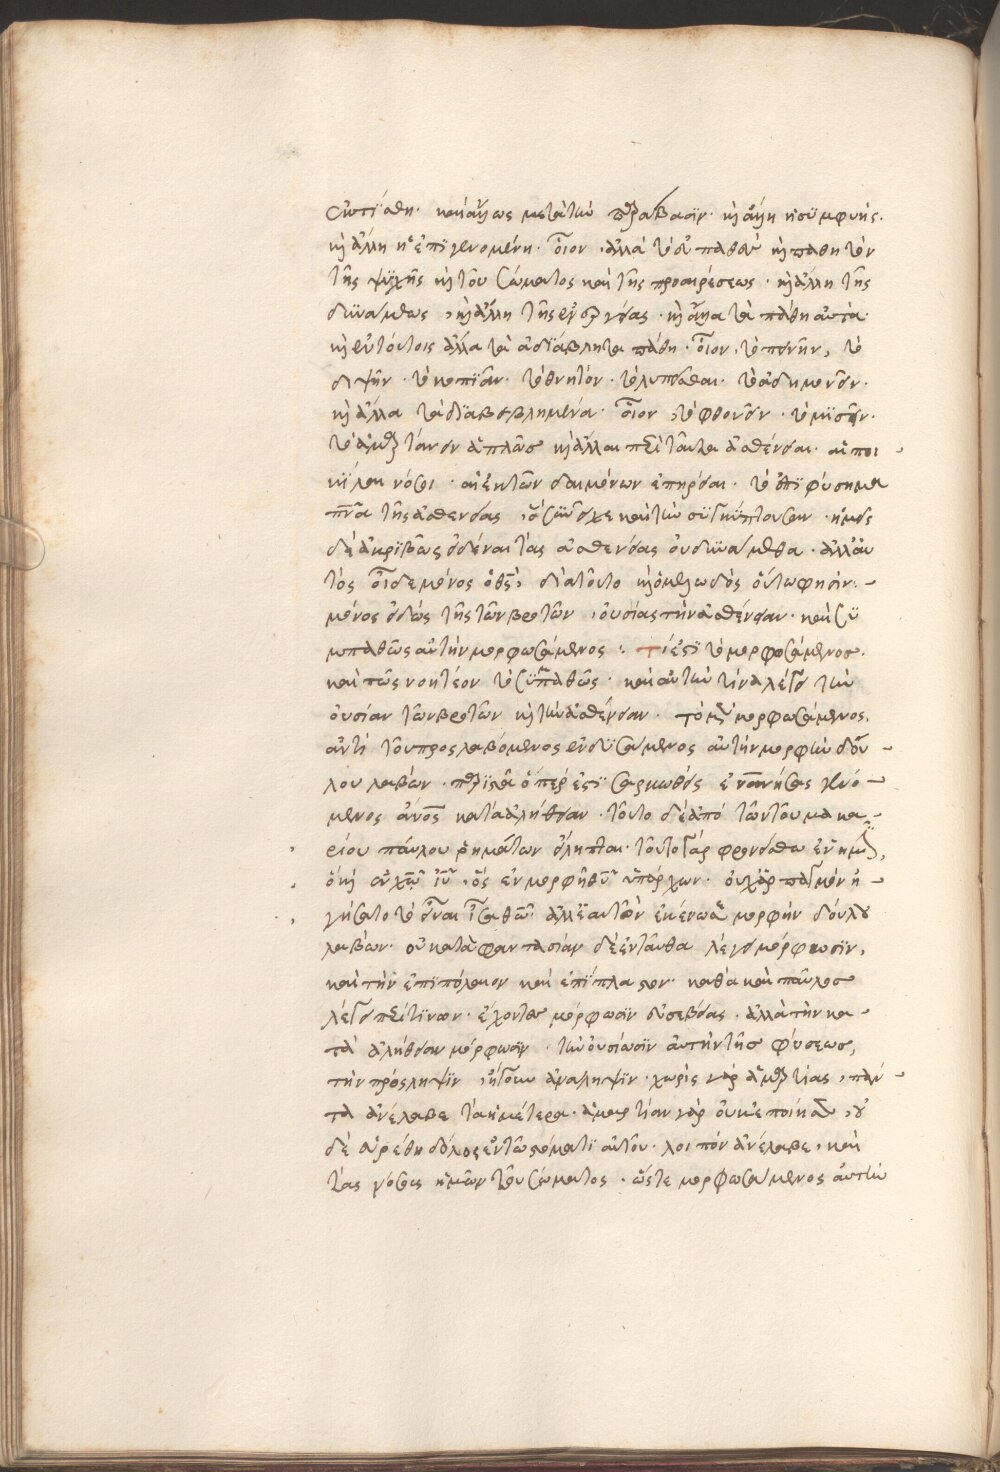 καὶ ἄλλως μετὰ τὴν παράβασιν· κ(αὶ) ἄλλη ἡ συμφυής.
κ(αὶ) ἄλλη ἡ ἐπιγενομένη· οἷον, ἀλλὰ τὸ παθεῖν κ(αὶ) παθητὸν
τῆς ψυχῆς κ(αὶ) τοῦ σώματος καὶ τῆς προαιρέσεως· κ(αὶ) ἄλλη τῆς
δυνάμεως, κ(αὶ) ἄλλη τῆς ἐνεργείας· κ(αὶ) ἄλλα τὰ πάθη αὐτά·
κ(αὶ) ἐν τούτοις ἄλλα τὰ ἀδιάβλητα πάθη· οἷον, τὸ πεινῆν, τὸ
διψῆν· τὸ κοπιᾶν· τὸ θνητόν· τὸ λυπεῖσθαι· τὸ ἀδημονεῖν·
κ(αὶ) ἄλλα τὰ διαβεβλημένα· οἷον, τὸ φθονεῖν· τὸ μισεῖν·
τὸ ἁμαρτάνειν ἁπλῶς κ(αὶ) ἄλλαι περὶ ταῦτα ἀσθένειαι· αἱ ποι-
κίλαι νόσοι· αἱ ἐκ τῶν δαιμόνων ἐπήρειαι· τὸ ἐπιφύσημα
πν(εῦμ)α τῆς ἀσθενείας, ὃ εἶχε καὶ τὴν συγκύπτουσαν· ἡμεῖς
δὲ ἀκριβῶς εἰδέναι τὰς ἀσθενείας οὐ δυνάμεθα· ἀλλ' αὐ
τὸς οἶδε μόνος ὁ θ(εό)ς· διὰ τοῦτο κ(αὶ) ὁ μελωδὸς οὕτω φησίν·-
μόνος εἰδὼς τῆς τῶν βροτῶν, οὐσίας τὴν ἀσθένειαν· καὶ συ
μπαθῶς αὐτὴν μορφωσάμενος· τί ἐστι τὸ μορφωσάμενος·
καὶ πῶς νοητέον τὸ συμπαθῶς· καὶ αὐτὴν τίνα λέγει τὴν
οὐσίαν τῶν βροτῶν κ(αὶ) τὴν ἀσθένειαν. τὸ μὲν μορφωσάμενος,
ἀντὶ τοῦ προσλαβόμενος ἐνδυσάμενος αὐτὴν μορφὴν δού-
λου λαβών· ὅπερ ἐστὶ σαρκωθεὶς ἐνανθρωπήσας γενό-
μενος ἄν(θρωπ)ος κατὰ ἀλήθειαν· τοῦτο δὲ ἀπὸ τῶν τοῦ μακα-
ρίου παύλου ῥημάτων εἴληπται· τοῦτο γὰρ φρονείσθω ἐν ἡμῖν,
ὃ κ(αὶ) ἐν χ(ριστ)ῷ ἰ(ησο)ῦ, ὃς ἐν μορφῇ θ(εο)ῦ ὑπάρχων· οὐχ ἁρπαγμὸν ἡ-
γήσατο τὸ εἶναι ἶσα θ(ε)ῷ· ἀλλ' ἑαυτὸν ἐκένωσε μορφὴν δούλου
λαβών· οὐ κατὰ φαντασίαν δὲ ἐνταῦθα λέγει μόρφωσιν,
καὶ τὴν ἐπιπόλαιον καὶ ἐπίπλαστον· καθὰ καὶ παῦλος
λέγει περί τινων· ἔχοντες μόρφωσιν εὐσεβείας· ἀλλὰ τὴν κα-
τὰ ἀλήθειαν μόρφωσιν· τὴν οὐσίωσιν αὐτὴν τῆς φύσεως,
τὴν πρόσληψιν, ἤγουν ἀνάληψιν· χωρὶς γὰρ ἁμαρτίας, πάν-
τα ἀνέλαβε τὰ ἡμέτερα· ἁμαρτίαν γὰρ οὐκ ἐποίησεν, οὐ
δὲ εὑρέθη δόλος ἐν τῷ στόματι αὐτοῦ· λοιπὸν ἀνέλαβε, καὶ
τὰς νόσους ἡμῶν τοῦ σώματος· ὥστε μορφωσάμενος αὐτὴν